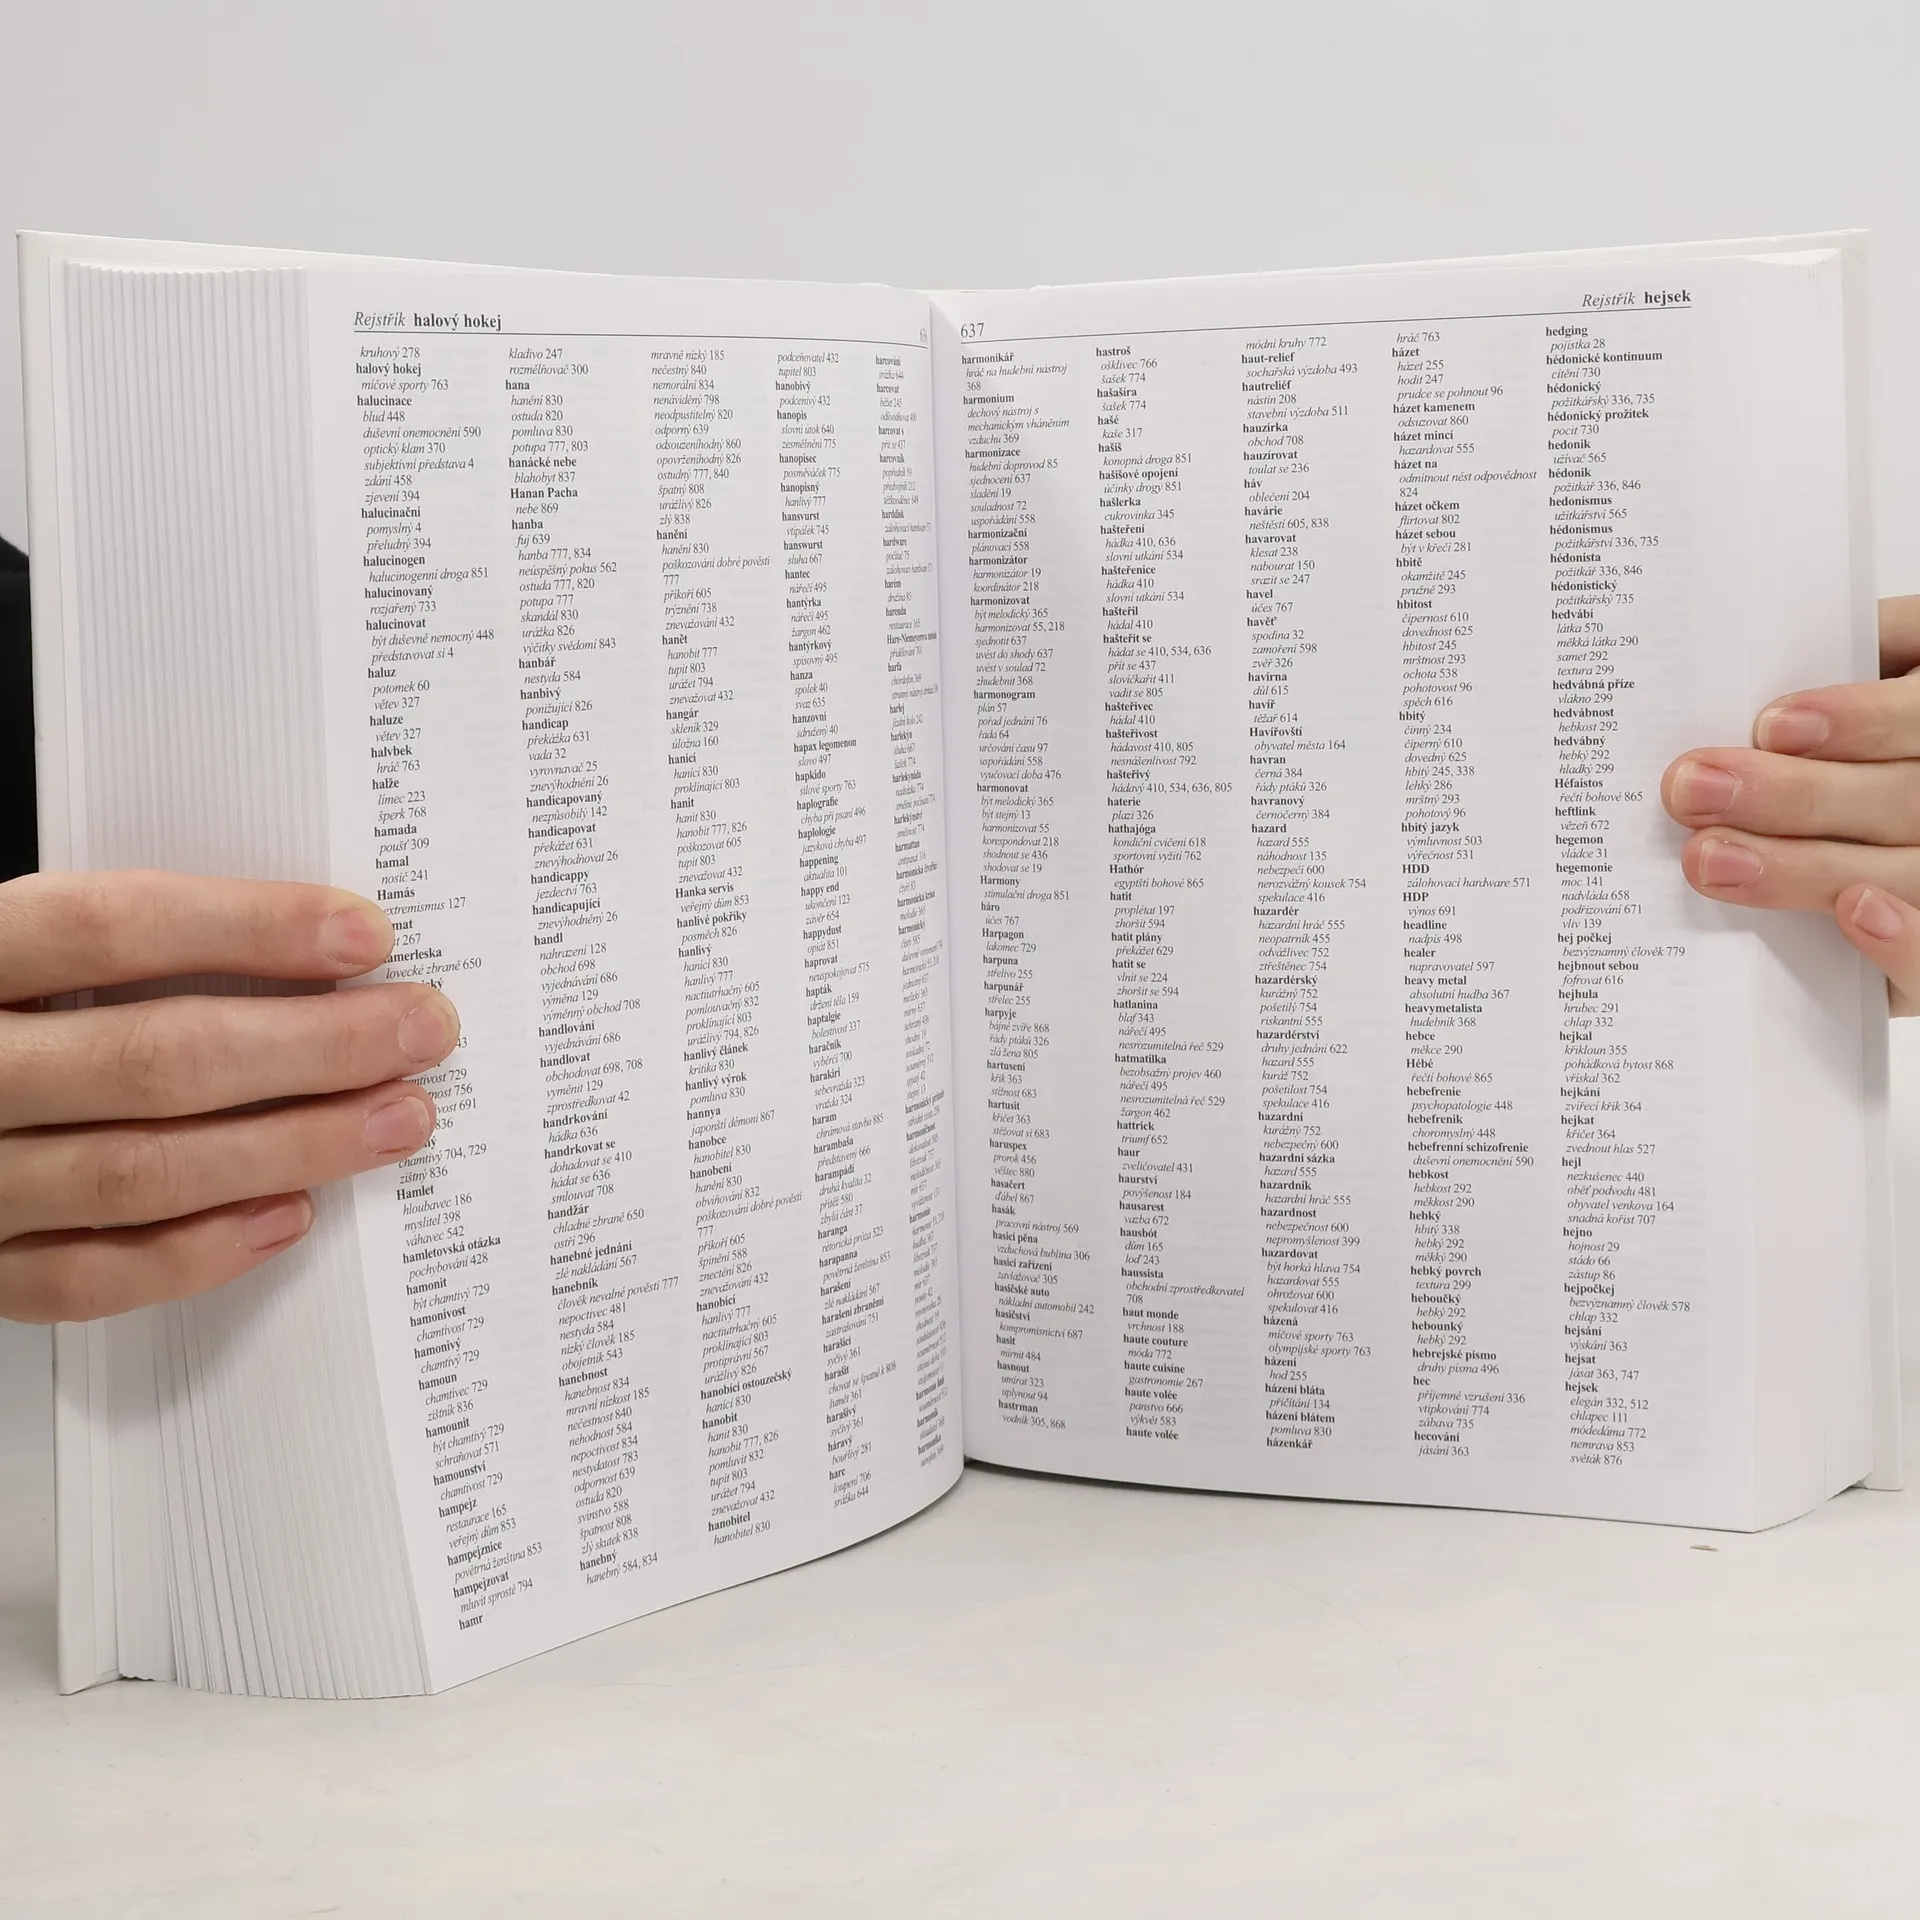 Rejstřík halový hokej
kruhový 278
halový hokej
míčové sporty 763
halucinace
blud 448
duševní onemocnění 590
optický klam 370
subjektivní představa 4
zdání 458
zjevení 394
halucinační
pomyslný 4
přeludný 394
halucinogen
halucinogenní droga 851
halucinovaný
rozjařený 733
halucinovat
být duševně nemocný 448
představovat si 4
haluz
potomek 60
větev 327
haluze
větev 327
halvbek
hráč 763
halže
límec 223
šperk 768
hamada
poušť 309
hamal
nosič 241
Hamás
extremismus 127
lovecké zbraně 650
chamtivý 704, 729
zištný 836
Hamlet
hloubavec 186
myslitel 398
váhavec 542
hamletovská otázka
pochybování 428
hamonit
být chamtivý 729
hamonivost
chamtivost 729
hamonivý
chamtivý 729
hamoun
chamtivec 729
zištník 836
hamounit
být chamtivý 729
schraňovat 571
hamounství
chamtivost 729
hampejz
restaurace 165
veřejný dům 853
hampejznice
povětrná ženština 853
hampejzovat
mluvit sprostě 794
hamr
kladivo 247
rozmělňovač 300
hana
hanění 830
ostuda 820
pomluva 830
potupa 777, 803
hanácké nebe
blahobyt 837
Hanan Pacha
nebe 869
hanba
fuj 639
hanba 777, 834
neúspěšný pokus 562
ostuda 777, 820
potupa 777
skandál 830
urážka 826
výčitky svědomí 843
hanbář
nestyda 584
hanbivý
ponižující 826
handicap
překážka 631
vada 32
vyrovnavač 25
znevýhodnění 26
handicapovaný
nezpůsobilý 142
handicapovat
překážet 631
znevýhodňovat 26
handicappy
jezdectví 763
handicapující
znevýhodněný 26
handl
nahrazení 128
obchod 698
vyjednávání 686
výměna 129
výměnný obchod 708
handlování
vyjednávání 686
handlovat
obchodovat 698, 708
vyměnit 129
zprostředkovat 42
handrkování
hádka 636
handrkovat se
dohadovat se 410
hádat se 636
smlouvat 708
handžár
chladné zbraně 650
ostří 296
hanebné jednání
zlé nakládání 567
hanebník
člověk nevalné pověsti 777
nepoctivec 481
nestyda 584
nízký člověk 185
obojetník 543
hanebnost
hanebnost 834
mravní nízkost 185
nečestnost 840
nehodnost 584
nepoctivost 834
nestydatost 783
odpornost 639
ostuda 820
svinstvo 588
špatnost 808
zlý skutek 838
hanebný
hanebný 584, 834
mravně nízký 185
nečestný 840
nemorální 834
nenáviděný 798
neodpustitelný 820
odporný 639
odsouzeníhodný 860
opovrženíhodný 826
ostudný 777, 840
špatný 808
urážlivý 826
zlý 838
hanění
hanění 830
poškozování dobré pověsti
777
příkoří 605
trýznění 738
znevažování 432
hanět
hanobit 777
tupit 803
urážet 794
znevažovat 432
hangár
skleník 329
úložna 160
hanící
hanící 830
proklínající 803
hanit
hanit 830
hanobit 777, 826
poškozovat 605
tupit 803
znevažovat 432
Hanka servis
veřejný dům 853
hanlivé pokřiky
posměch 826
hanlivý
hanící 830
hanlivý 777
nactiutrhačný 605
pomlouvačný 832
proklínající 803
urážlivý 794, 826
hanlivý článek
kritika 830
hanlivý výrok
pomluva 830
hannya
japonští démoni 867
hanobce
hanobitel 830
hanobení
hanění 830
obviňování 832
poškozování dobré pověsti
777
příkoří 605
špinění 588
znectění 826
znevažování 432
hanobící
hanlivý 777
nactiutrhačný 605
proklínající 803
protiprávní 567
urážlivý 826
hanobící ostouzečský
hanící 830
hanobit
hanit 830
hanobit 777, 826
pomluvit 832
tupit 803
urážet 794
znevažovat 432
hanobitel
hanobitel 830
podceňovatel 432
tupitel 803
hanobivý
podcenivý 432
hanopis
slovní útok 640
zesměšnění 775
hanopisec
posměváček 775
hanopisný
hanlivý 777
hansvurst
vtipálek 745
hanswurst
sluha 667
hantec
nářečí 495
hantýrka
nářečí 495
žargon 462
hantýrkový
spisovný 495
hanza
spolek 40
svaz 635
hanzovní
sdružený 40
hapax legomenon
slovo 497
hapkido
silové sporty 763
haplografie
chyba při psaní 496
haplologie
jazyková chyba 497
happening
aktualita 101
happy end
ukončení 123
závěr 654
happydust
opiát 851
haprovat
neuspokojovat 575
hapták
držení těla 159
haptalgie
bolestivost 337
haračník
výběrčí 700
harakiri
sebevražda 323
vražda 324
haram
chrámová stavba 885
harambaša
představený 666
harampádí
druhá kvalita 32
přítěž 580
zbylá část 37
haranga
rétorická próza 523
harapanna
povětrná ženština 853
harašení
zlé nakládání 567
harašení zbraněmi
zastrašování 751
harašící
syčivý 361
harašit
chovat se špatně k 808
šumět 361
harašivý
syčivý 361
háravý
bouřlivý 281
harc
loupení 706
srážka 644
harcování
srážka 644
harcovat
běžet 245
harcovat s
přít se 437
harcovník
harddisk
hardware
počítač 75
harém
družina 85
harenda
restaurace 165
harfa
637
Rejstřík hejsek
harmonikář
hráč na hudební nástroj
368
harmonium
dechový nástroj s
mechanickým vháněním
vzduchu 369
harmonizace
hudební doprovod 85
sjednocení 637
sladění 19
souladnost 72
uspořádání 558
harmonizační
plánovací 558
harmonizátor
harmonizátor 19
koordinátor 218
harmonizovat
být melodický 365
harmonizovat 55, 218
sjednotit 637
uvést do shody 637
uvést v soulad 72
zhudebnit 368
harmonogram
plán 57
pořad jednání 76
řada 64
určování času 97
uspořádání 558
vyučovací doba 476
harmonovat
být melodický 365
být stejný 13
harmonizovat 55
korespondovat 218
shodnout se 436
shodovat se 19
Harmony
stimulační droga 851
háro
účes 767
Harpagon
lakomec 729
harpuna
střelivo 255
harpunář
střelec 255
harpyje
bájné zvíře 868
řády ptáků 326
zlá žena 805
hartusení
křik 363
stížnost 683
hartusit
křičet 363
stěžovat si 683
haruspex
prorok 456
věštec 880
hasačert
ďábel 867
hasák
pracovní nástroj 569
hasicí pěna
vzduchová bublina 306
hasicí zařízení
zavlažovač 305
hasičské auto
nákladní automobil 242
hasičství
kompromisnictví 687
hasit
mírnit 484
hasnout
umírat 323
uplynout 94
hastrman
vodník 305, 868
hastroš
ošklivec 766
šašek 774
hašašíra
šašek 774
hašé
kaše 317
hašiš
konopná droga 851
hašišové opojení
účinky drogy 851
hašlerka
cukrovinka 345
hašteření
hádka 410, 636
slovní utkání 534
hašteřenice
hádka 410
slovní utkání 534
hašteřil
hádal 410
hašteřit se
hádat se 410, 534, 636
přít se 437
slovíčkařit 411
vadit se 805
hašteřivec
hádal 410
hašteřivost
hádavost 410, 805
nesnášenlivost 792
hašteřivý
hádavý 410, 534, 636, 805
haterie
plazi 326
hathajóga
kondiční cvičení 618
sportovní vyžití 762
Hathór
egyptští bohové 865
hatit
proplétat 197
zhoršit 594
hatit plány
překážet 629
hatit se
vlnit se 224
zhoršit se 594
hatlanina
blaf 343
nářečí 495
nesrozumitelná řeč 529
hatmatilka
bezobsažný projev 460
nářečí 495
nesrozumitelná řeč 529
žargon 462
hattrick
triumf 652
haur
zveličovatel 431
haurství
povýšenost 184
hausarest
vazba 672
hausbót
dům 165
loď 243
haussista
obchodní zprostředkovatel
708
haut monde
vrchnost 188
haute couture
móda 772
haute cuisine
gastronomie 267
haute volée
panstvo 666
výkvět 583
haute volée
módní kruhy 772
haut-relief
sochařská výzdoba 493
hautreliéf
nástin 208
stavební výzdoba 511
hauzírka
obchod 708
hauzírovat
toulat se 236
háv
oblečení 204
havárie
neštěstí 605, 838
havarovat
klesat 238
nabourat 150
srazit se 247
havel
účes 767
havěť
spodina 32
zamoření 598
zvěř 326
havírna
důl 615
havíř
těžař 614
Havířovští
obyvatel města 164
havran
černá 384
řády ptáků 326
havranový
černočerný 384
hazard
hazard 555
náhodnost 135
nebezpečí 600
nerozvážný kousek 754
spekulace 416
hazardér
hazardní hráč 555
neopatrník 455
odvážlivec 752
ztřeštěnec 754
hazardérský
kurážný 752
pošetilý 754
riskantní 555
hazardérství
druhy jednání 622
hazard 555
kuráž 752
pošetilost 754
spekulace 416
hazardní
kurážný 752
nebezpečný 600
hazardní sázka
hazard 555
hazardník
hazardní hráč 555
hazardnost
nebezpečnost 600
nepromyšlenost 399
hazardovat
být horká hlava 754
hazardovat 555
ohrožovat 600
spekulovat 416
házená
míčové sporty 763
olympijské sporty 763
házení
hod 255
házení bláta
přičítání 134
házení blátem
pomluva 830
házenkář
hráč 763
házet
házet 255
hodit 247
prudce se pohnout 96
házet kamenem
odsuzovat 860
házet mincí
hazardovat 555
házet na
odmítnout nést odpovědnost
824
házet očkem
flirtovat 802
házet sebou
být v křeči 281
hbitě
okamžitě 245
pružně 293
hbitost
čipernost 610
dovednost 625
hbitost 245
mrštnost 293
ochota 538
pohotovost 96
spěch 616
hbitý
činný 234
čiperný 610
dovedný 625
hbitý 245, 338
lehký 286
mrštný 293
pohotový 96
hbitý jazyk
výmluvnost 503
výřečnost 531
HDD
zálohovací hardware 571
HDP
výnos 691
headline
nadpis 498
healer
napravovatel 597
heavy metal
absolutní hudba 367
heavymetalista
hudebník 368
hebce
měkce 290
Hébé
řečtí bohové 865
hebefrenie
psychopatologie 448
hebefrenik
choromyslný 448
hebefrenní schizofrenie
duševní onemocnění 590
hebkost
hebkost 292
měkkost 290
hebký
hbitý 338
hebký 292
měkký 290
hebký povrch
textura 299
heboučký
hebký 292
hebounký
hebký 292
hebrejské písmo
druhy písma 496
hec
příjemné vzrušení 336
vtipkování 774
zábava 735
hecování
jásání 363
hedging
pojistka 28
hédonické kontinuum
cítění 730
hédonický
požitkářský 336, 735
hédonický prožitek
pocit 730
hedonik
uživač 565
hédonik
požitkář 336, 846
hedonismus
užitkářství 565
hédonismus
požitkářství 336, 735
hédonista
požitkář 336, 846
hédonistický
požitkářský 735
hedvábí
látka 570
měkká látka 290
samet 292
textura 299
hedvábná příze
vlákno 299
hedvábnost
hebkost 292
hedvábný
hebký 292
hladký 299
Héfaistos
řečtí bohové 865
heftlink
vězeň 672
hegemon
vládce 31
hegemonie
moc 141
nadvláda 658
podřizování 671
vliv 139
hej počkej
bezvýznamný člověk 779
hejbnout sebou
fofrovat 616
hejhula
hrubec 291
chlap 332
hejkal
křikloun 355
pohádková bytost 868
vřískal 362
hejkání
zvířecí křik 364
hejkat
křičet 364
zvednout hlas 527
hejl
nezkušenec 440
oběť podvodu 481
obyvatel venkova 164
snadná kořist 707
hejno
hojnost 29
stádo 66
zástup 86
hejpočkej
bezvýznamný člověk 578
chlap 332
hejsání
výskání 363
hejsat
jásat 363, 747
hejsek
elegán 332, 512
chlapec 111
módedáma 772
nemrava 853
světák 876